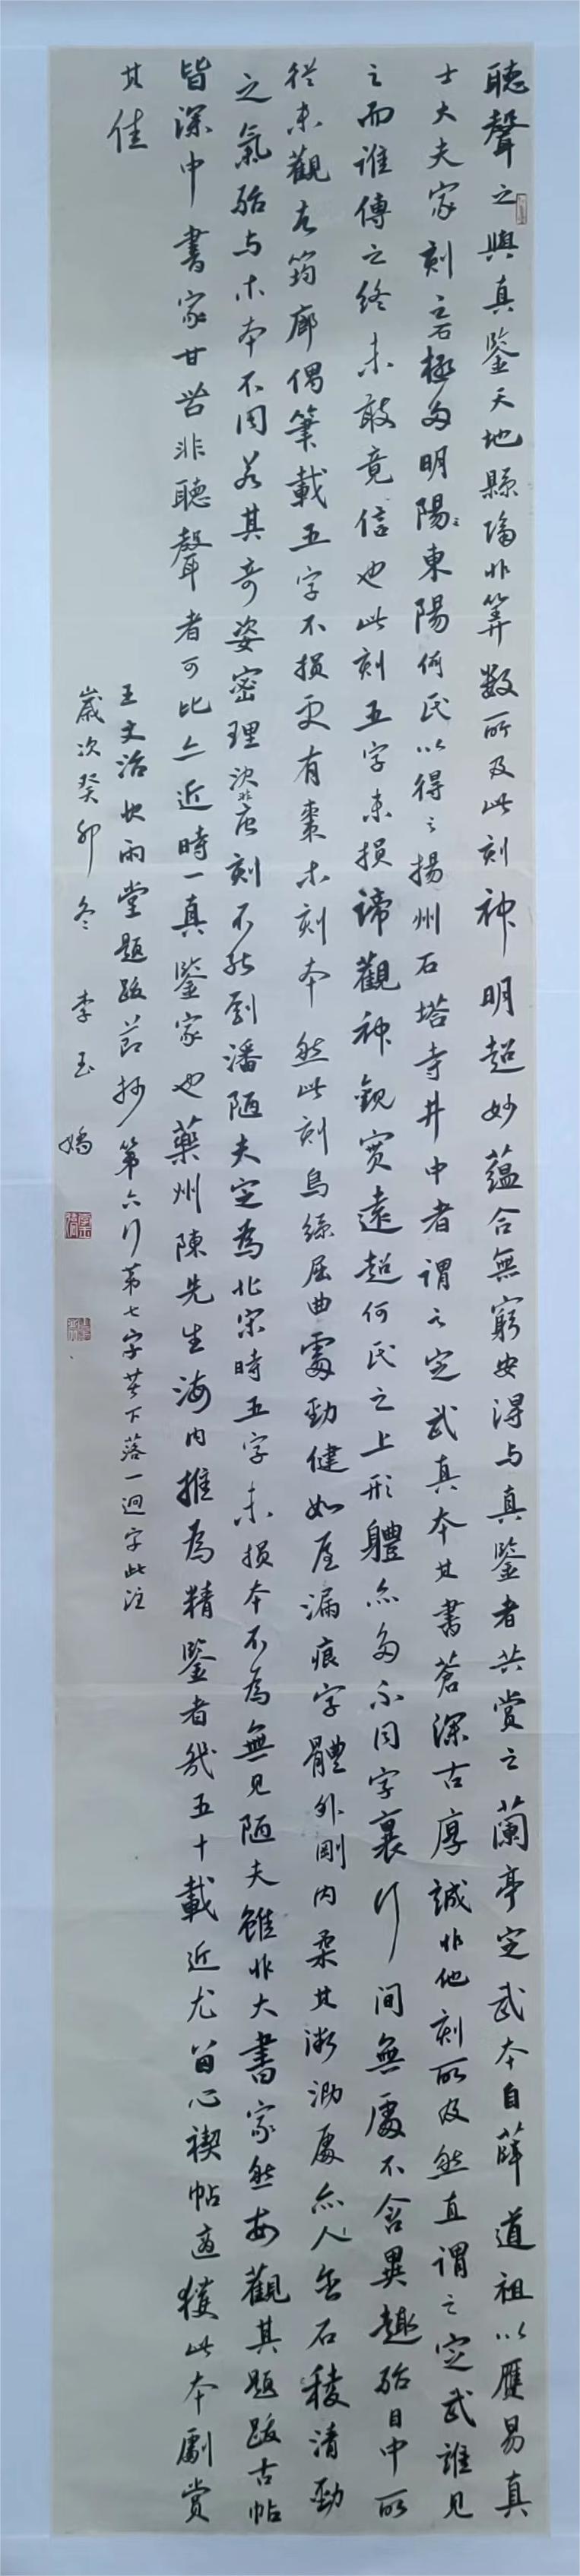 聽聲之與真鑒天地縣隔非筭數所及此刻神明超妙蘊合無窮安得与真鑒者共賞之蘭亭定武本自薛道祖以贋易真
士大夫家刻之石極多明陽〻東陽何氏以得之揚州石塔寺井中者謂之定武真本其書蒼深古厚誠非他刻所及然直謂之定武誰見
之而誰傳之終未敢竟信也此刻五字未損諦觀神觀實遠超何氏之上形體亦多不同字裏行間無處不含異趣殆目中所
從未觀古筠廊偶筆載五字不損更有棗木刻本然此刻鳥絲屈曲處勁健如屋漏痕字體外剛内柔其渺泐處亦人無石稜清勁
之氣殆与木本不同若其奇姿密理決非唐刻不能到潘陋夫定為北宋時五字未損本不為無見陋夫雖非大書家然每觀其題跋古帖
皆深中書家甘苦非聽聲者可比亦近時一真鑒家也藥州陳先生海内推為精鑒者幾五十載近尤留心禊帖適獲此本劇賞
其佳
王文治快雨堂題跋節抄第六行第七字甘下落一迴字此注
歲次癸卯冬 李玉嬌